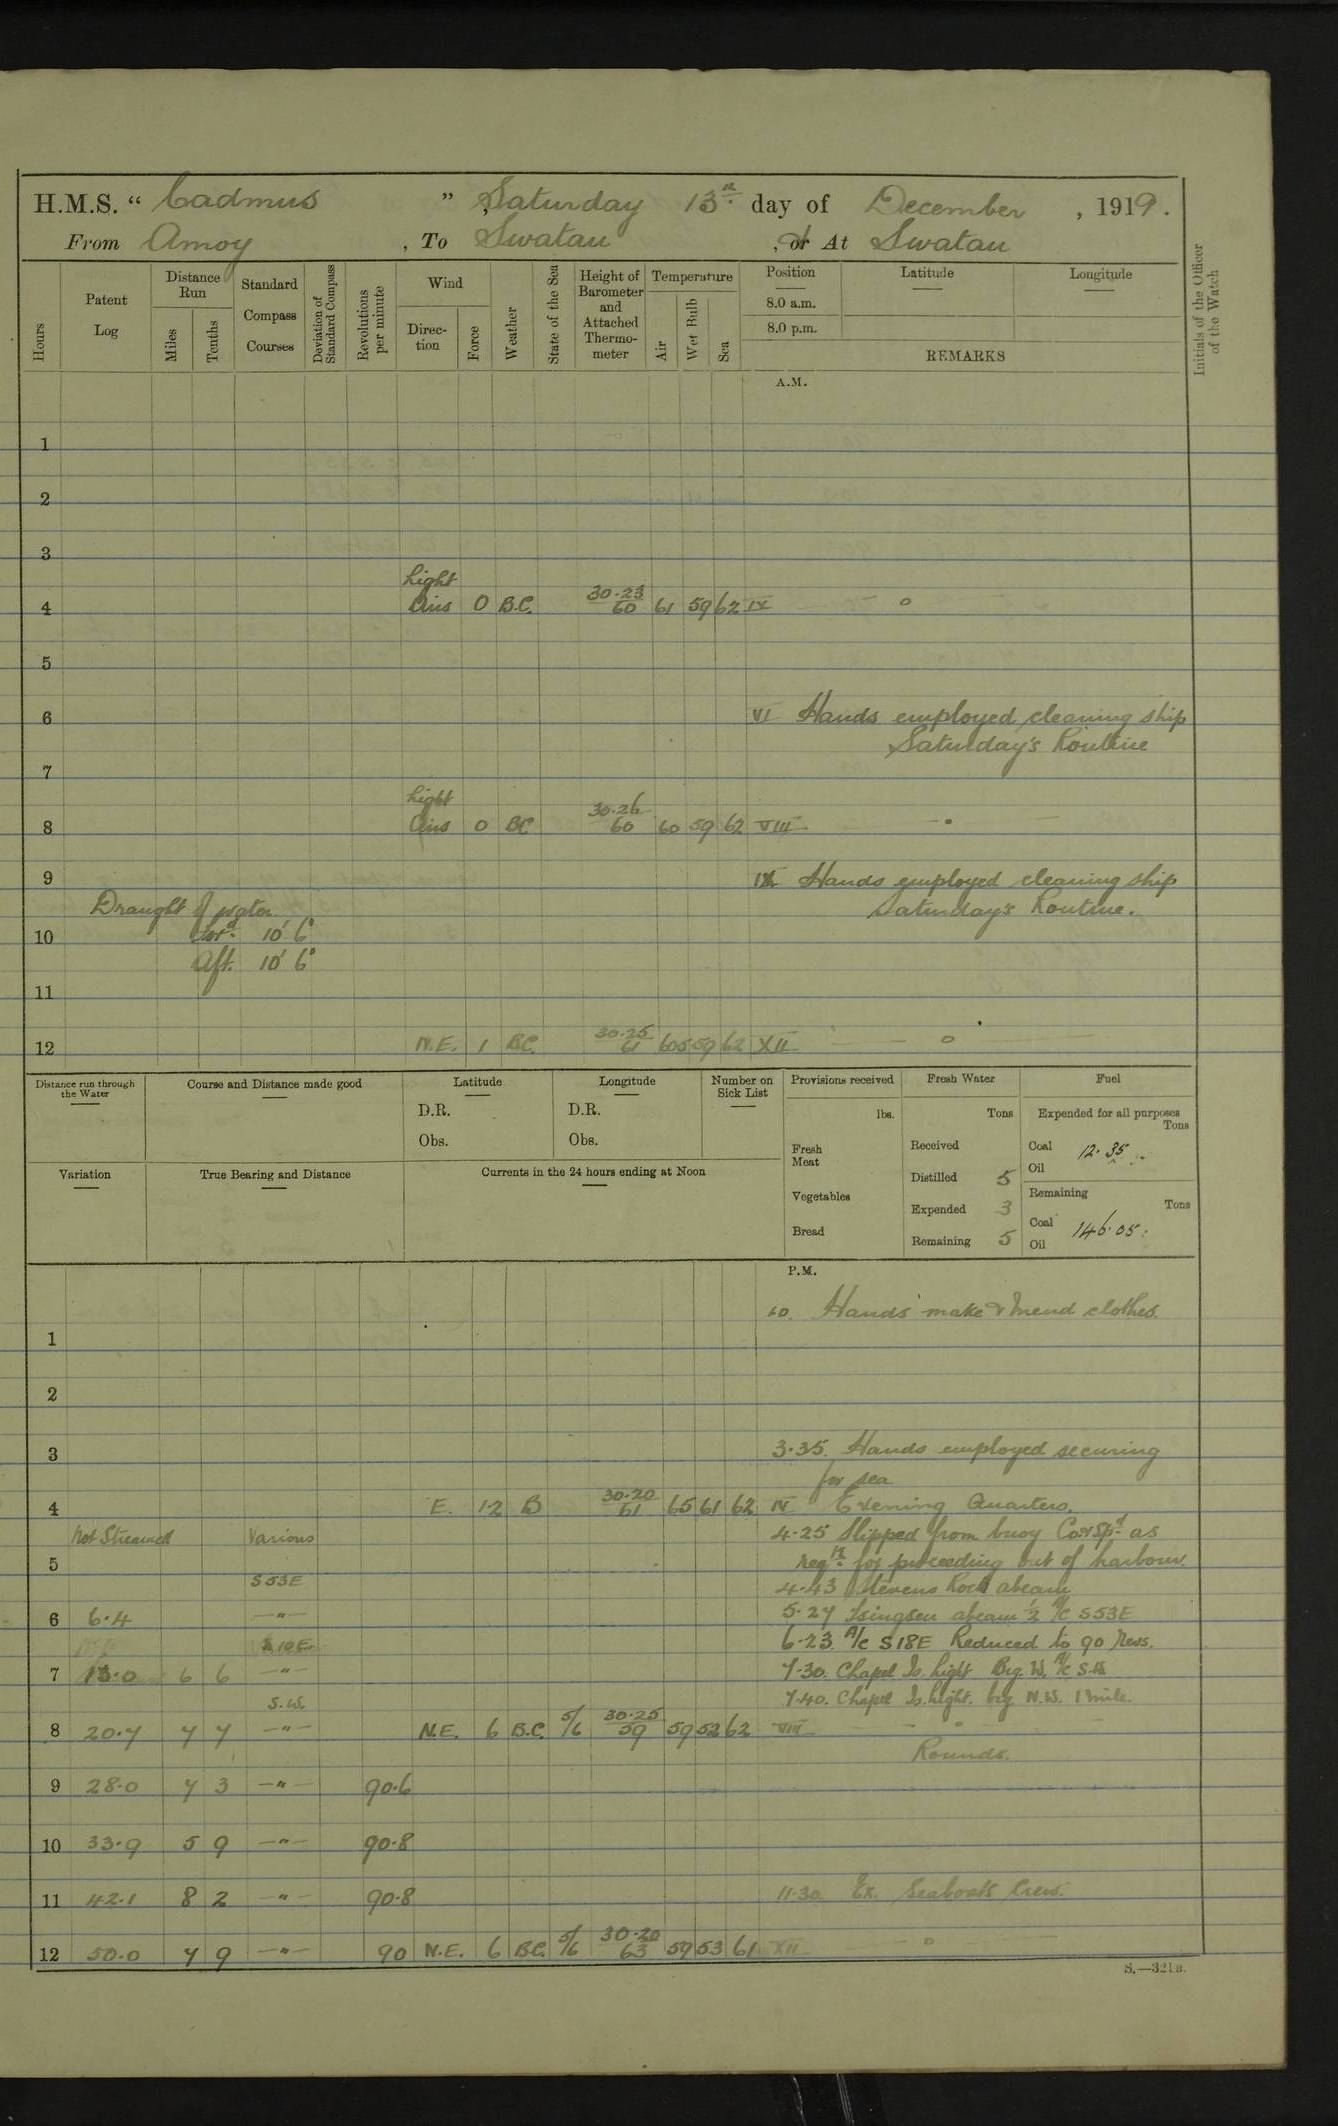 H.M.S. “ Cadmus ” , Saturday 13th day of December , 1919.
From Amoy , To Swatau , or At Swatau
Hours
Patent Log
Distance Run
Miles
Tenths
Standard Compass Courses
Deviation of Standard Compass
Revolutions per minute
Wind
Direc-tion
Force
Weather
State of the Sea
Height of Barometer and Attached Thermo-meter
Temperature
Air
Wet Bulb
Sea
Position
8.0 a.m.
8.0 p.m.
Latitude
Longitude
REMARKS
Initials of the Officer of the Watch
A.M.
1
2
3
Light
4 Airs 0 B.C. 30·23 60 61 59 62 IV — o —
5
6 VI Hands employed cleaning ship
Saturday's Routine
7
Light
8 Airs 0 BC 30·26 60 60 59 62 VIII — " —
9 IX Hands employed cleaning ship
Draught of water Saturday's Routine.
10 Ford. 10' 6"
Aft. 10' 6"
11
12 N.E. 1 B.C. 30·25 61 60.5 59 62 XII — o —
Distance run through the Water
Course and Distance made good
Latitude
D.R.
Obs.
Longitude
D.R.
Obs.
Number on Sick List
Provisions received
lbs.
Fresh Meat
Vegetables
Bread
Fresh Water
Tons
Received
Distilled 5
Expended 3
Remaining 5
Fuel
Expended for all purposes
Tons
Coal 12·35
Oil
Remaining
Tons
Coal 146·05
Oil
Variation
True Bearing and Distance
Currents in the 24 hours ending at Noon
P.M.
Hands make & mend clothes.
1
2
3 3·35. Hands employed securing
for sea
4 E. 1·2 B 30·20 61 65 61 62 IV Evening Quarters.
Not Streamed Various 4·25 Slipped from buoy Co & Spd as
5 reqd. for proceeding out of harbour.
S53E 4·43 Stevens Rock abeam
6 6·4 —"— 5·27 Tsingseu abeam ½ A/C S53E
S18E 6·23. A/C S18E Reduced to 90 revs.
7 13·0 6 6 —"— 7·30. Chapel Is. light Brg. W. A/C S.W.
S.W. 7·40. Chapel Is. light. brg N.W. 1 mile.
8 20·7 7 7 —"— N.E. 6 B.C. 5/6 30·25 59 59 52 62 VIII — " —
Rounds.
9 28·0 7 3 —"— 90·6
10 33·9 5 9 —"— 90·8
11 42·1 8 2 —"— 90·8 11·30. Ex. Seaboats Crew.
12 50·0 7 9 —"— 90 N.E. 6 BC. 5/6 30·20 63 59 53 61 XII — o —
S.—321B.